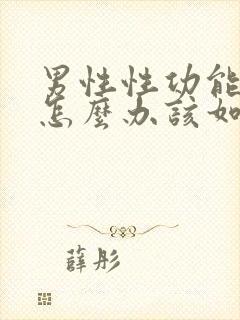 男性性功能
怎麼办該如
薛彤